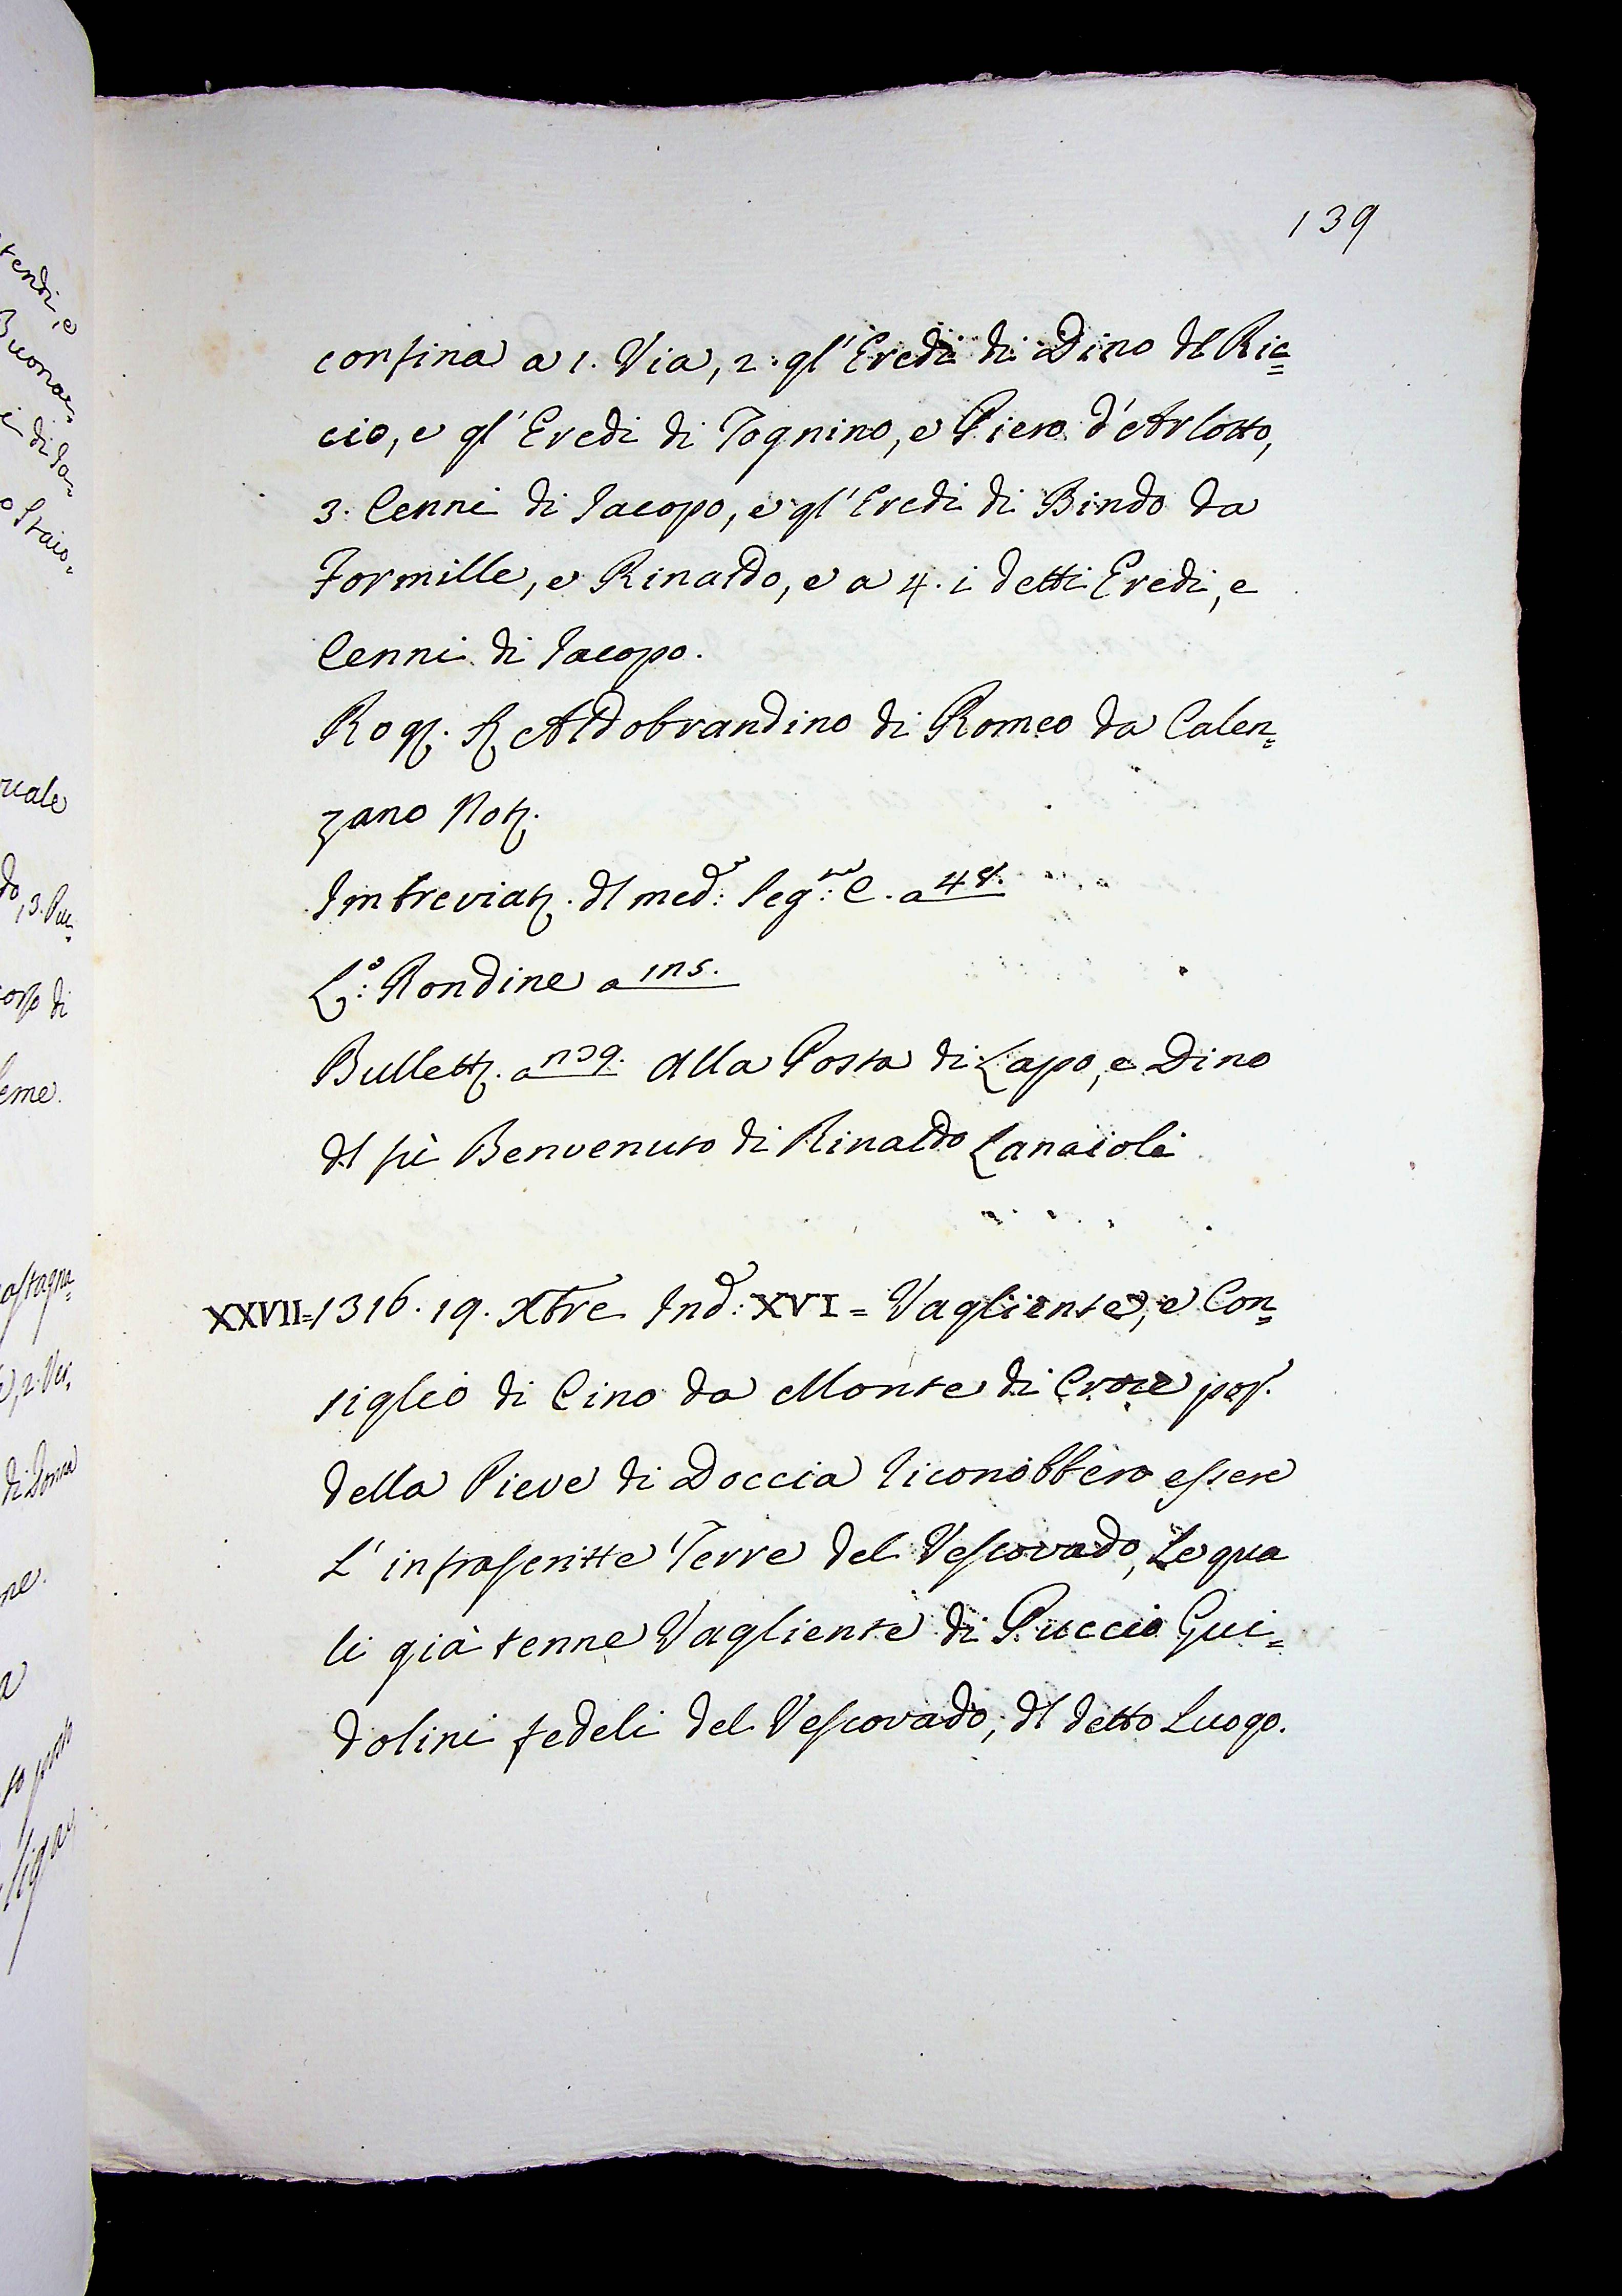 139
confina a 1. Via, 2. gl' Eredi di Dino dl Ric=
cio, e gl' Eredi di Tognino, e Piero d'Arlotto,
3. Cenni di Iacopo, e gl' Eredi di Bindo da
Formille, e Rinaldo, e a 4. i detti Eredi, e
Cenni di Iacopo.
Rog. Aldobrandino di Romeo da Calen=
zano Not.
Imbreviat. dl med: seg: C. a 48.
L: Rondine a 115.
Bullett. a 139. Alla Posta di Lapo, e Dino
dl fù Benvenuto di Rinaldo Lanaioli
XXVII=1316. 19. Xbre Ind: XVI = Vagliente, e Con=
siglio di Cino da Monte di Croce pop.
della Pieve di Doccia riconobbero essere
L' infrascritte Terre del Vescovado, Le qua
li già tenne Vagliente di Puccio Gui=
dolini fedeli del Vescovado, dl detto Luogo.
tendi, e
Buonac=
i di Ia=
o Staio=
do, 3. Puc=
orso di
eme.
astagna=
, 2. Ver=
ne.